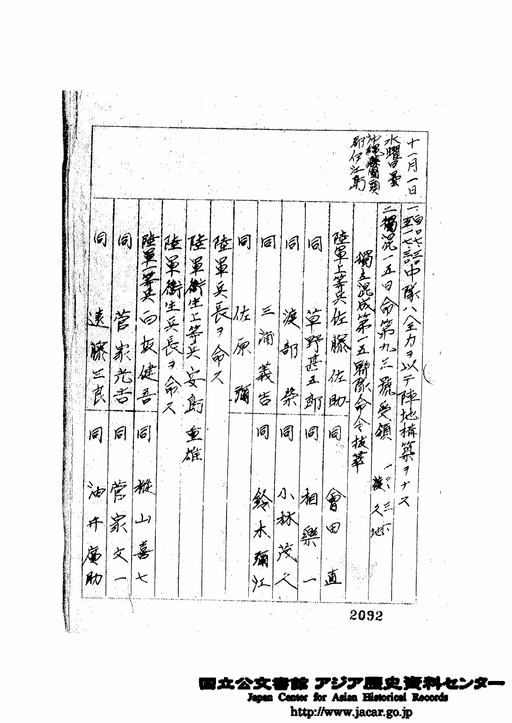 十一月一日
水曜日 曇
沖縄縣國頭
郡伊江島
中隊ハ全力ヲ以テ陣地構築ヲナス
二、獨混一五日命第九三號受領
獨立混成第一五聯隊命令拔萃
陸軍上等兵 佐藤佐助 同 會田直
同 草野甚五郎 同 相樂一
同 渡部榮 同 小林茂
同 三浦義吉 同 鈴木彌江
同 佐原彌
陸軍兵長ヲ命ス
陸軍衛生上等兵 安島重雄
陸軍衛生兵長ヲ命ス
陸軍一等兵 白坂健吾 同 樅山喜七
同 菅家光吉 同 菅家文一
同 遠藤三良 同 油井廣助
2092
国立公文書館 アジア歴史資料センター
Japan Center for Asian Historical Records
http://www.jacar.go.jp